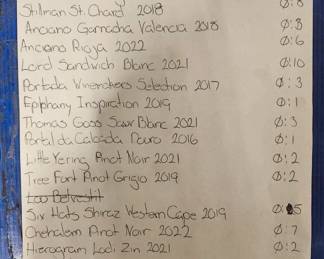 Stillman St. Chard 2018 Ø:8
Anciano Garnacha Valencia 2018 Ø:8
Anciano Rioja 2022 Ø:6
Lord Sandwich Blanc 2021 Ø:10
Portada Winemakers Selection 2017 Ø:3
Epiphany Inspiration 2019 Ø:1
Thomas Goss Sauv Blanc 2021 Ø:3
Portal da Calçada Douro 2016 Ø:1
Little Yering Pinot Noir 2021 Ø:2
Tree Fort Pinot Grigio 2019 Ø:2
Six Hats Shiraz Western Cape 2019 Ø:5
Chehalem Pinot Noir 2022 Ø:7
Hierogram Lodi Zin 2021 Ø:2